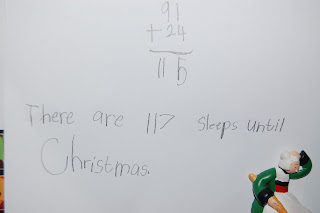 91
+24
115
There are 117 sleeps until
Christmas.